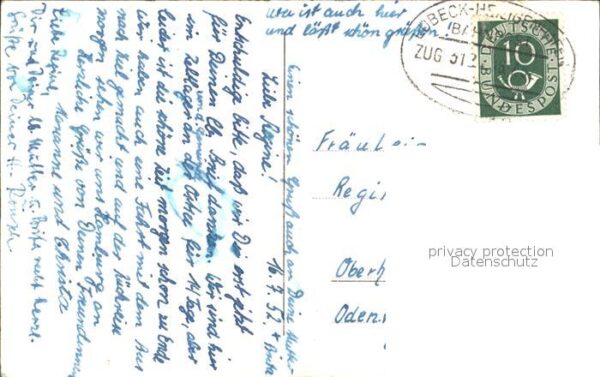 16.7.52
Liebe Regine!
Entschuldige bitte, daß wir Dir erst jetzt
für Deinen lb. Brief danken. Wir sind hier
im Zeltlager an der Ostsee für 14 Tage, aber
leider ist die schöne Zeit morgen schon zu Ende
Wir haben auch eine Fahrt mit dem Aus
nach Kiel gemacht und auf der Rückreise
morgen sehen wir uns Hamburg an
Herzliche Grüße von Deinen Freundinnen
und Christa
Liebe Regine,
Dir und Deiner lb. Mutter u. recht herzl.
Grüße von Deiner
Einen schönen Gruß auch an Deine Mutter
Uwe ist auch hier
und läßt schön grüßen!
LÜBECK-HEILIGEN
ZUG 512
DEUTSCHE
BUNDESPOST
10
Fräulei
Regi
Oberh
Oden
privacy protection
Datenschutz